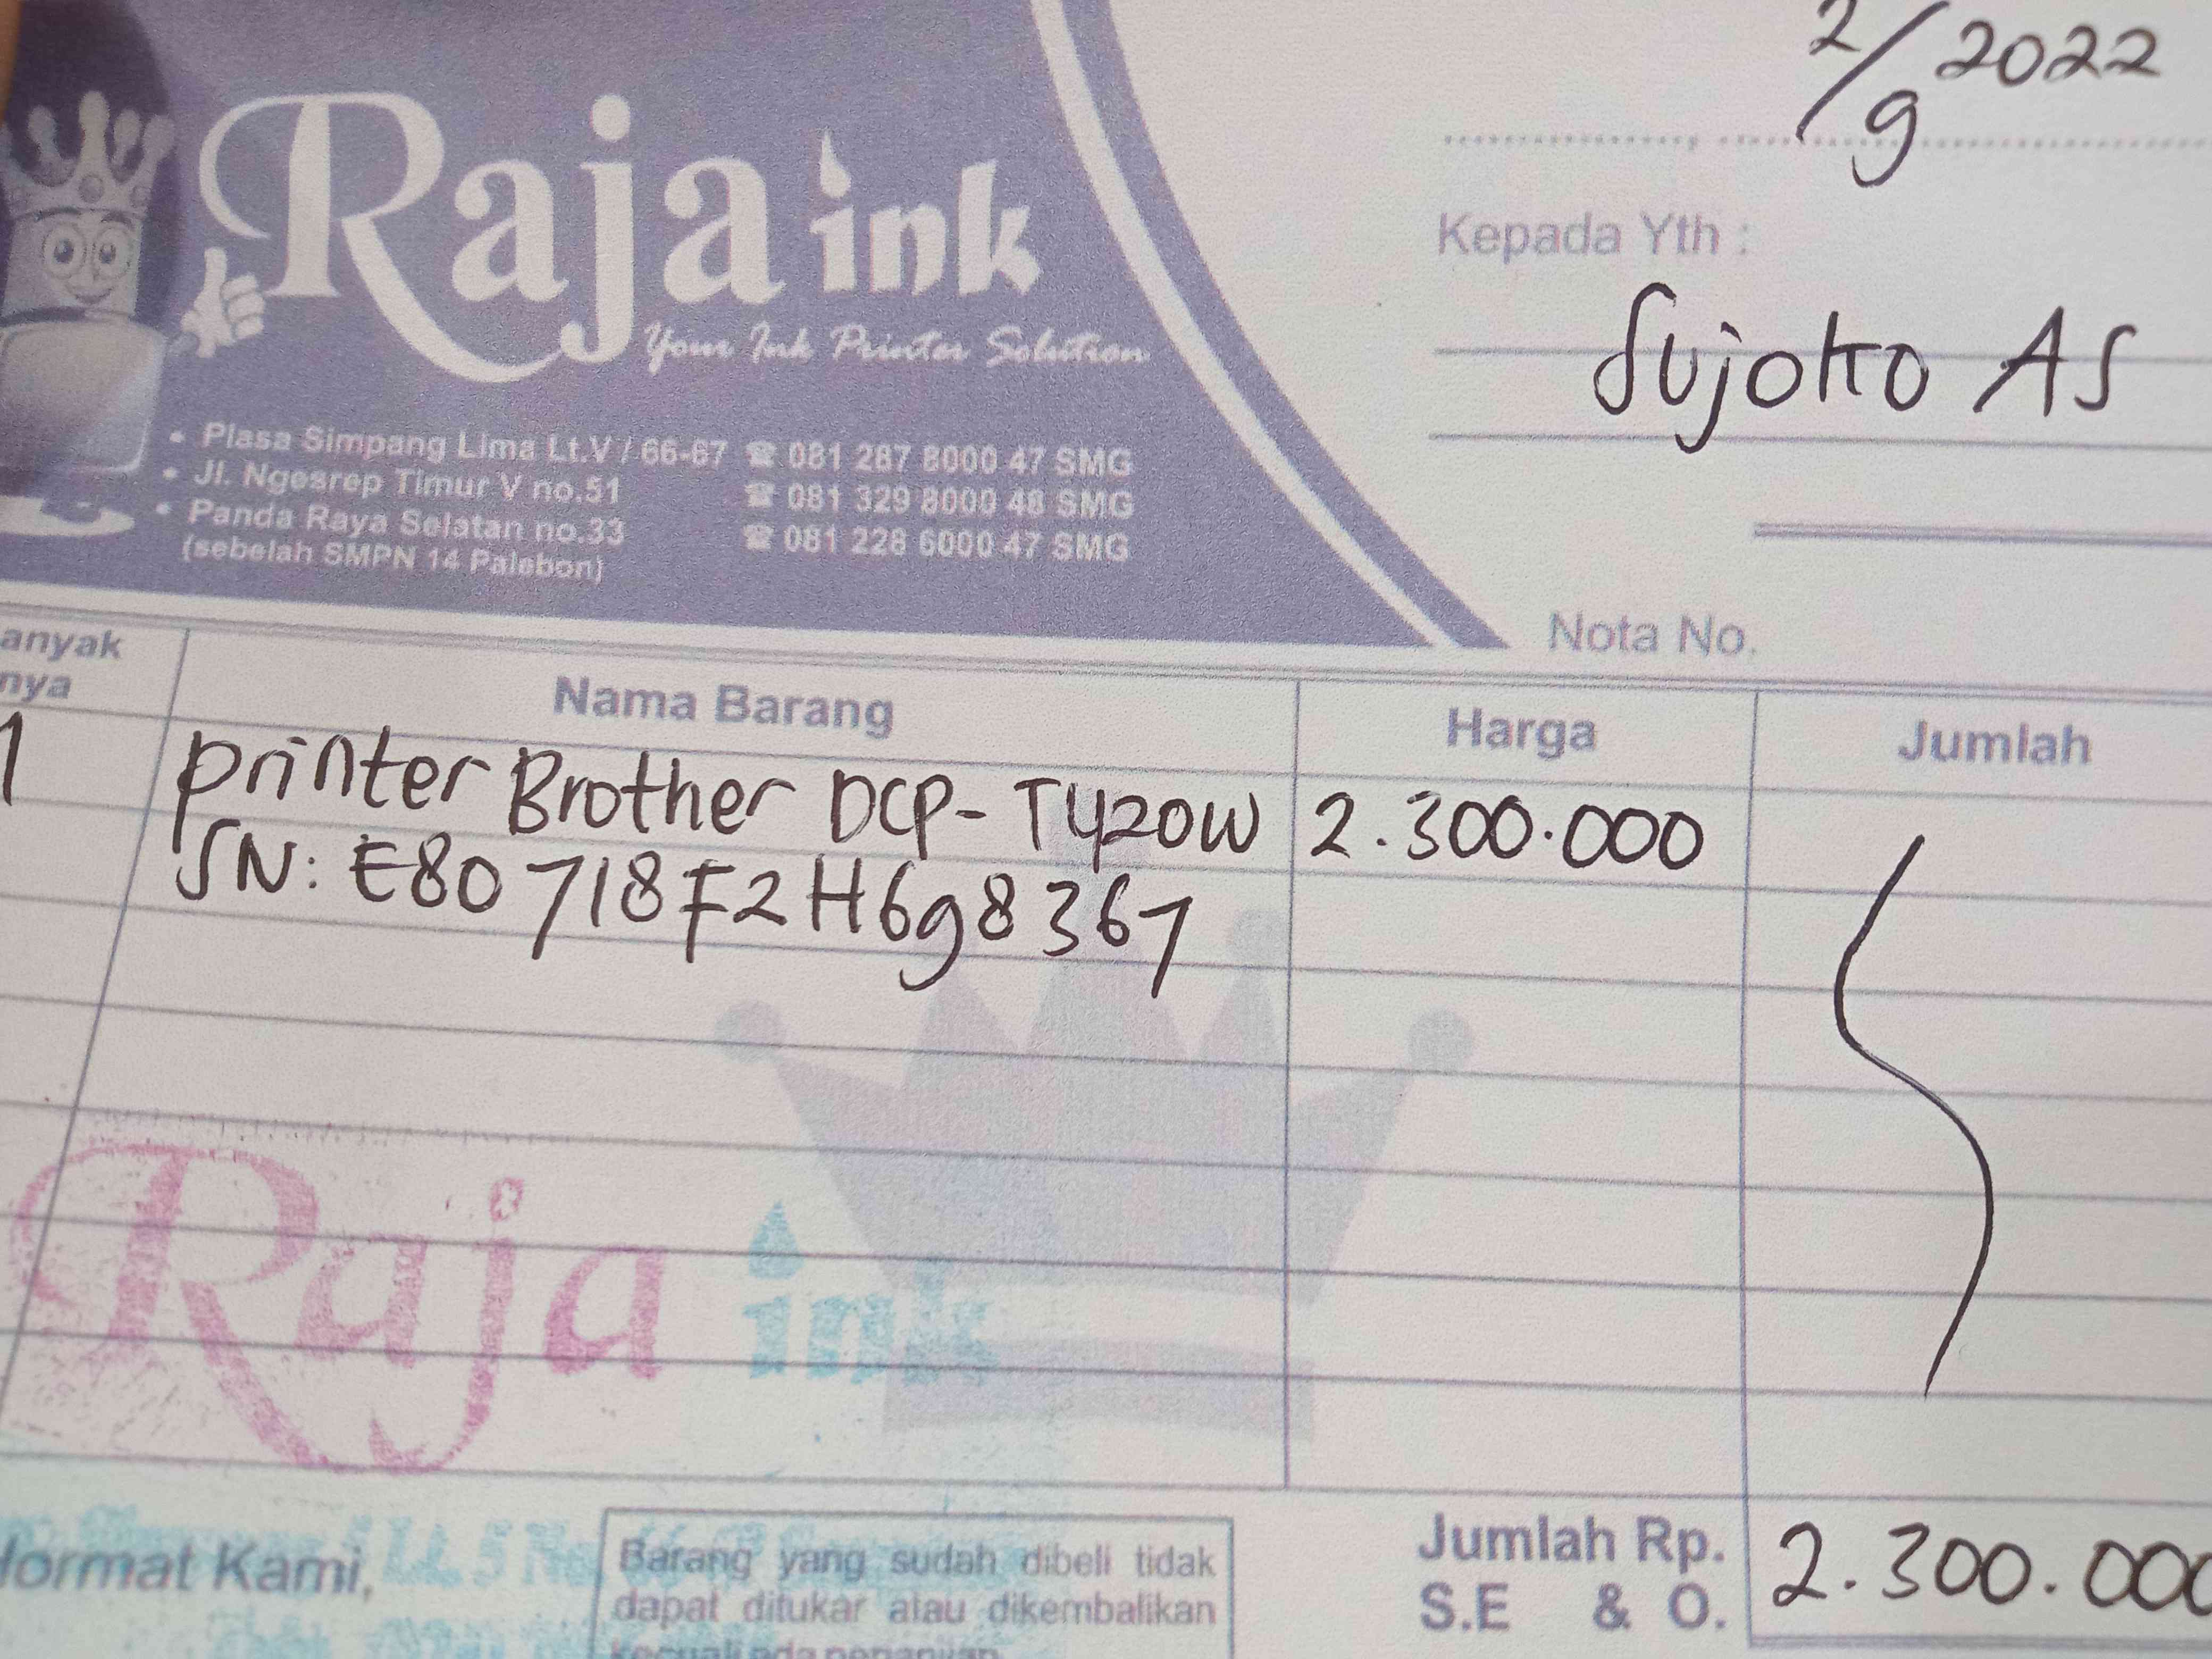 2/9 2022
Raja ink
Your Ink Printer Solution
Kepada Yth :
Sujoko AS
• Plasa Simpang Lima Lt.V / 66-67 ☎ 081 287 8000 47 SMG
• Jl. Ngesrep Timur V no.51 ☎ 081 329 8000 48 SMG
• Panda Raya Selatan no.33 ☎ 081 228 6000 47 SMG
(sebelah SMPN 14 Palebon)
Nota No.
anyak
nya
Nama Barang
Harga
Jumlah
1 printer Brother DCP-T420W 2.300.000
SN: E80718F2H6g8367
Raja ink
Hormat Kami,
Barang yang sudah dibeli tidak
dapat ditukar atau dikembalikan
kecuali ada perjanjian
Jumlah Rp. 2.300.000
S.E & O.